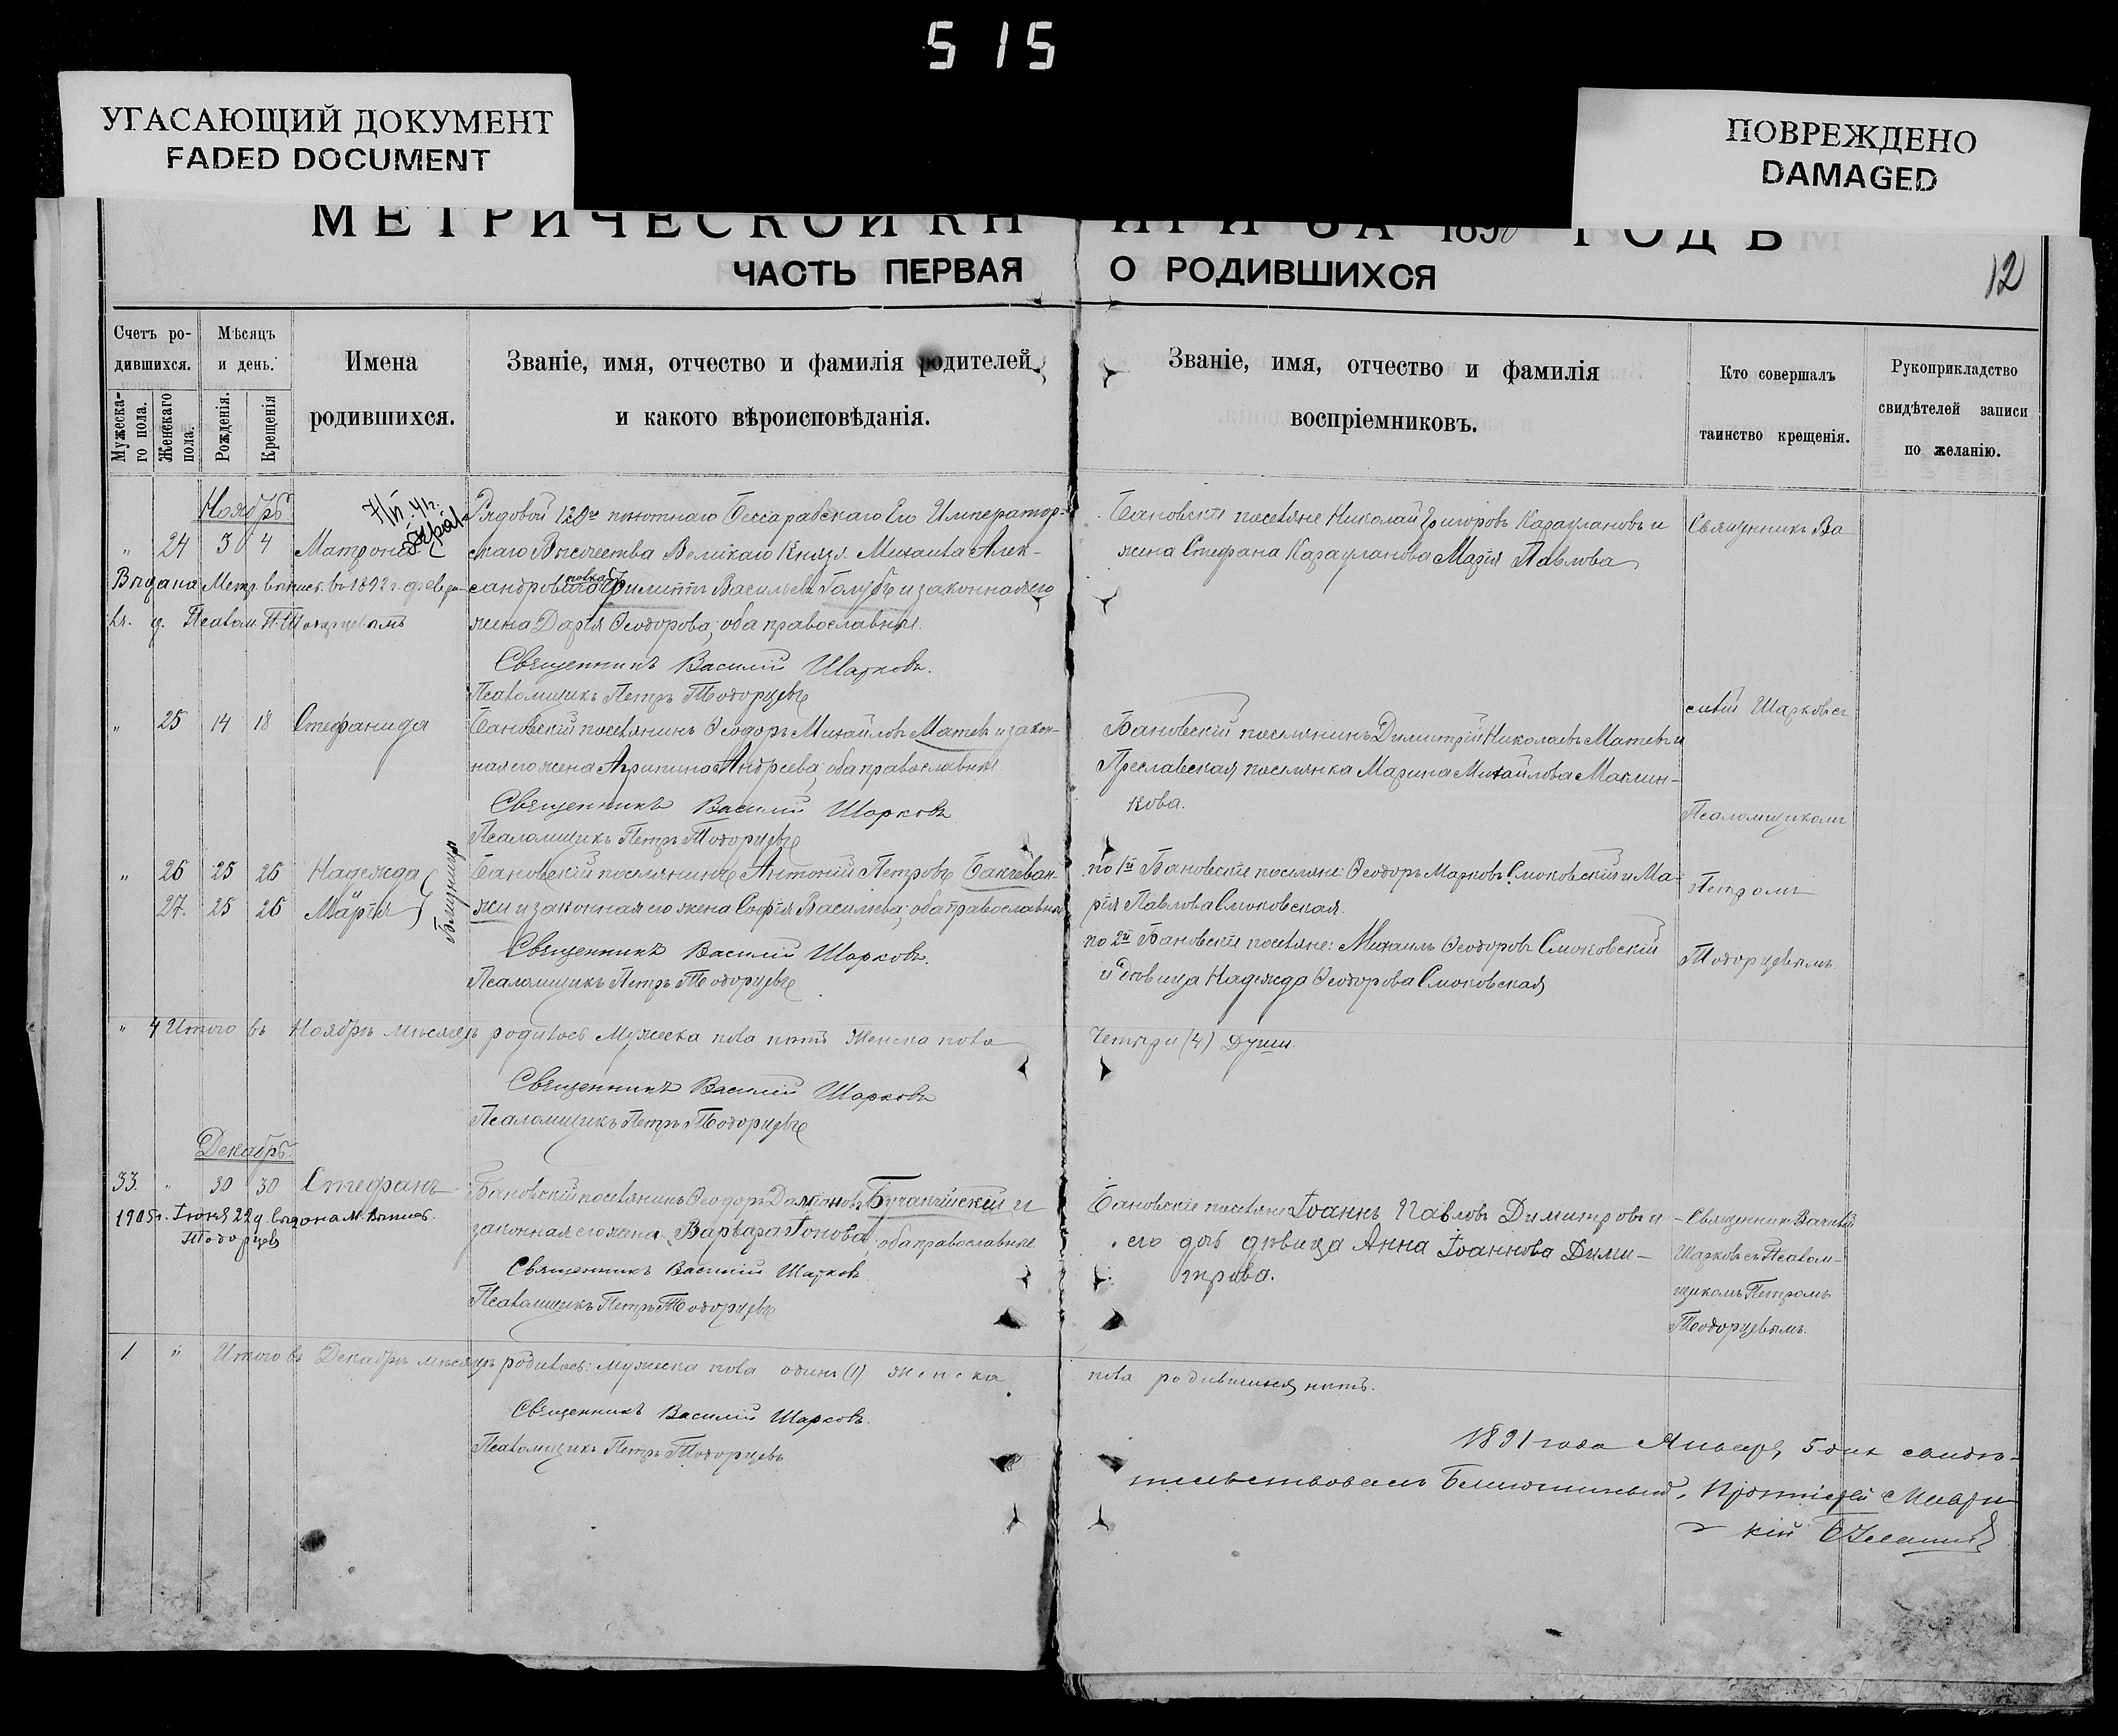 515
УГАСАЮЩИЙ ДОКУМЕНТ
FADED DOCUMENT
ПОВРЕЖДЕНО
DAMAGED
МЕТРИЧЕСКОЙ КНИГИ ЗА 1890 ГОДЪ
ЧАСТЬ ПЕРВАЯ О РОДИВШИХСЯ
12
Счетъ ро-
дившихся.
Мужеска-
го пола.
Женскаго
пола.
Мѣсяцъ
и день.
Рожденія.
Крещенія
Имена
родившихся.
Званіе, имя, отчество и фамилія родителей
и какого вѣроисповѣданія.
Званіе, имя, отчество и фамилія
воспріемниковъ.
Кто совершалъ
таинство крещенія.
Рукоприкладство
свидѣтелей записи
по желанію.
Ноябрь
" 24 3 4 Матрона
Рядовой 120го пѣхотнаго Бессарабскаго Его Император-
скаго Высочества Великаго Князя Михаила Алек-
сандровича полка Филиппъ Васильевъ Голубь и законная его
жена Дарія Ѳеодорова, оба православные.
Священникъ Василій Шарковъ.
Псаломщикъ Петръ Тодорцевъ
Выдана Метр. выпись въ 1892 г. февра
Псалом. П. Тодорцевымъ
Бановскіе поселяне Николай Григоровъ Карауланову и
жена Стефана Карауланова Марія Павлова
Священникъ Ва
силій Шарковъ съ
Псаломщикомъ
Петромъ
Тодорцевымъ.
" 25 14 18 Стефанида
Бановскій поселянинъ Ѳеодоръ Михайловъ Матевъ и закон-
ная его жена Агрипина Андреева, оба православные.
Священникъ Василій Шарковъ
Псаломщикъ Петръ Тодорцевъ
Бановскій поселянинъ Димитрій Николаевъ Матевъ и
Преславская поселянка Марина Михайлова Маклин-
кова.
" 26 25 26 Надежда
27. 25 26 Марія
Близницы
Бановскій поселянинъ Антоній Петровъ Бакчеван-
жи и законная его жена Софія Васильева, оба православные
Священникъ Василій Шарковъ.
Псаломщикъ Петръ Тодорцевъ
по 1й Бановскіе поселяне: Ѳеодоръ Марковъ Смоковскій и Ма-
рія Павлова Смоковская.
по 2й Бановскіе поселяне: Михаилъ Ѳеодоровъ Смоковскій
и дѣвица Надежда Ѳеодорова Смоковская
" 4 Итого въ Ноябрѣ мѣсяцѣ родилось Мужеска пола нѣтъ Женска пола
Четыри (4) Души.
Священникъ Василій Шарковъ
Псаломщикъ Петръ Тодорцевъ
Декабрь.
33. " 30 30 Стефанъ
1905 г. Іюня 22 д. выдана М. Выпись.
Тодорцевъ
Бановскій поселянинъ Ѳеодоръ Даміановъ Бучакчійскій и
законная его жена Варвара Іонова, оба православные
Священникъ Василій Шарковъ.
Псаломщикъ Петръ Тодорцевъ
Бановскіе поселяне Іоаннъ Павловъ Димитровъ и
его дочь дѣвица Анна Іоаннова Дими-
трова.
Священникъ Василій
Шарковъ съ Псалом-
щикомъ Петромъ
Тодорцевымъ.
1 " Итого въ Декабрѣ мѣсяцѣ родилось: мужеска пола одинъ (1) женска
пола родившихся нѣтъ.
Священникъ Василій Шарковъ.
Псаломщикъ Петръ Тодорцевъ
1891 года Января 5 дня свидѣ-
тельствовалъ Благочинный, Протоіерей